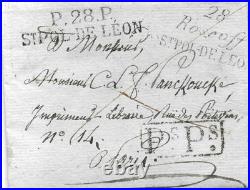 P. 28. P.
ST POL-DE-LÉON
28
Roscoff
ST POL-DE-LEO
A Monsieur,
Monsieur C. L. F. Panckoucke,
Imprimeur Libraire Rue des Poitevins
N.º 14.
Ps. Ps.
à Paris